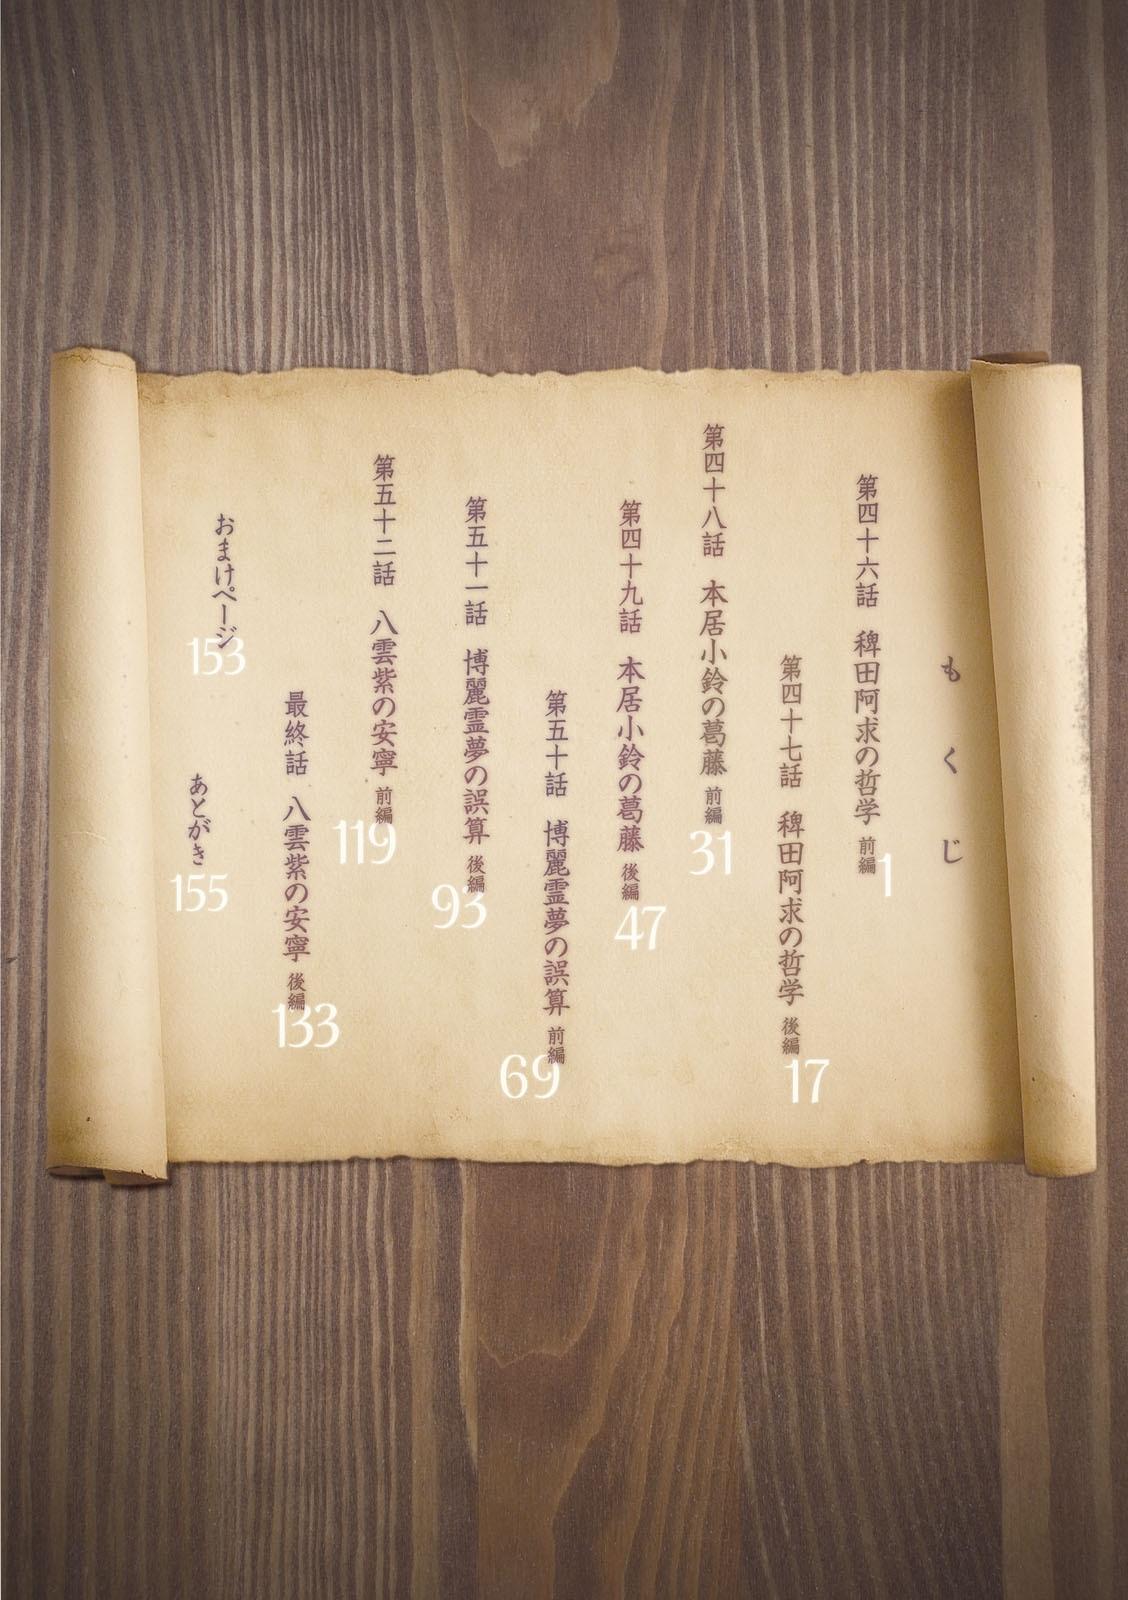 もくじ
第四十六話 稗田阿求の哲学 前編 1
第四十七話 稗田阿求の哲学 後編 17
第四十八話 本居小鈴の葛藤 前編 31
第四十九話 本居小鈴の葛藤 後編 47
第五十話 博麗霊夢の誤算 前編 69
第五十一話 博麗霊夢の誤算 後編 93
第五十二話 八雲紫の安寧 前編 119
最終話 八雲紫の安寧 後編 133
おまけページ 153
あとがき 155